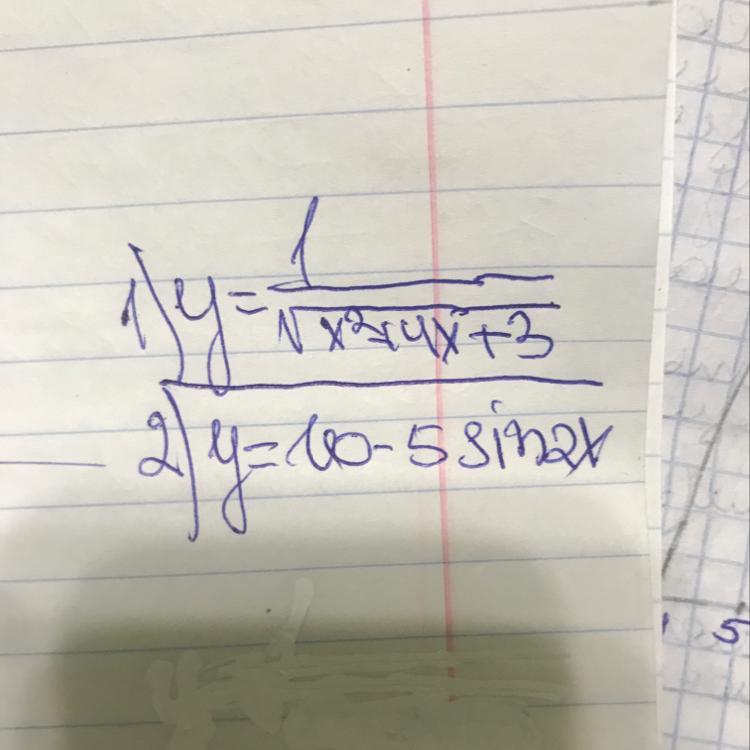 1) y = 1 / √x²+4x+3
2) y = 10 - 5 sin2x
5